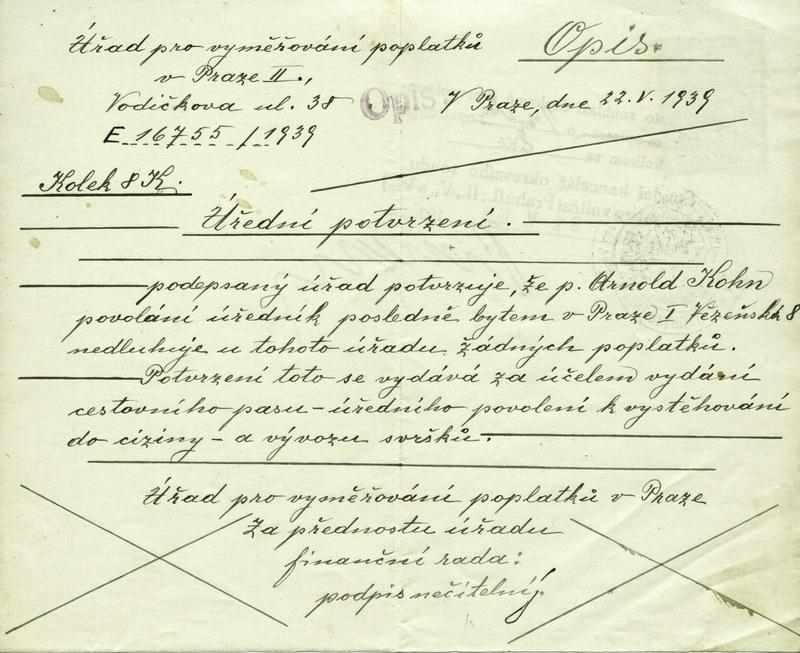 Úřad pro vyměřování poplatků
v Praze II.,
Vodičkova ul. 38
E 16755/1939
Opis.
Opis
V Praze, dne 22.V. 1939
Kolek 8 K.
Úřední potvrzení.
podepsaný úřad potvrzuje, že p. Arnold Kohn
povolání úředník posledně bytem v Praze I Vězeňská 8
nedluhuje u tohoto úřadu žádných poplatků.
Potvrzení toto se vydává za účelem vydání
cestovního pasu - úředního povolení k vystěhování
do ciziny - a vývozu svršků.
Úřad pro vyměřování poplatků v Praze
Za přednostu úřadu
finanční rada:
podpis nečitelný.